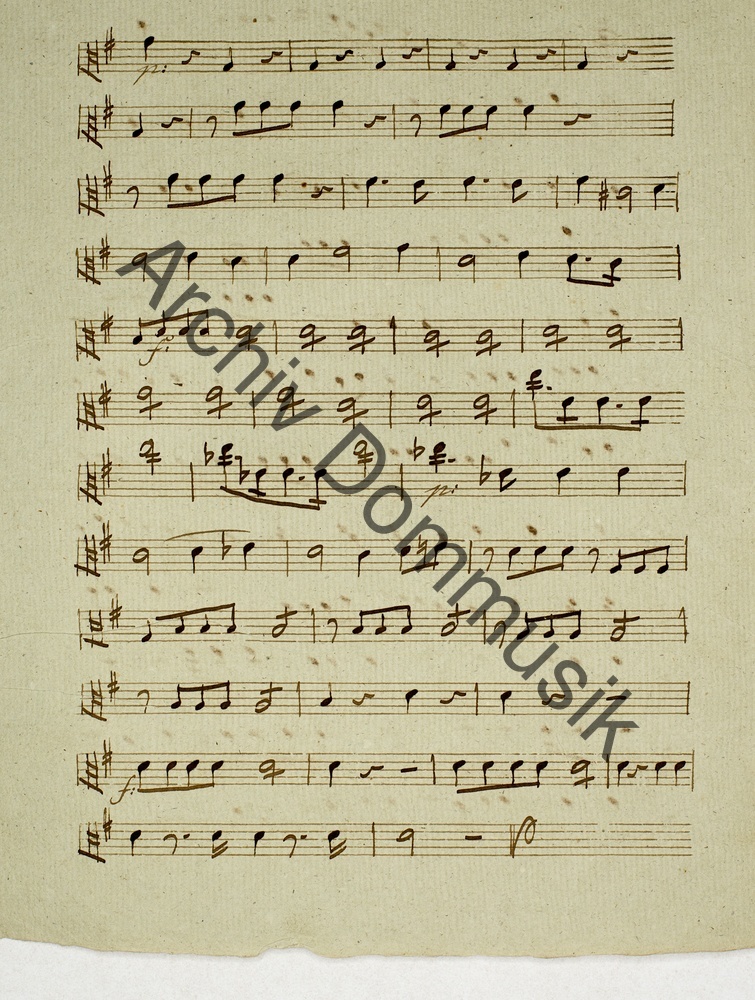 p:
f:
p:
f:
Archiv Dommusik